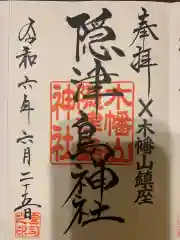 奉拝
木幡山鎮座
隠津島神社
木幡山
隠津島
神社
令和六年六月二十五日